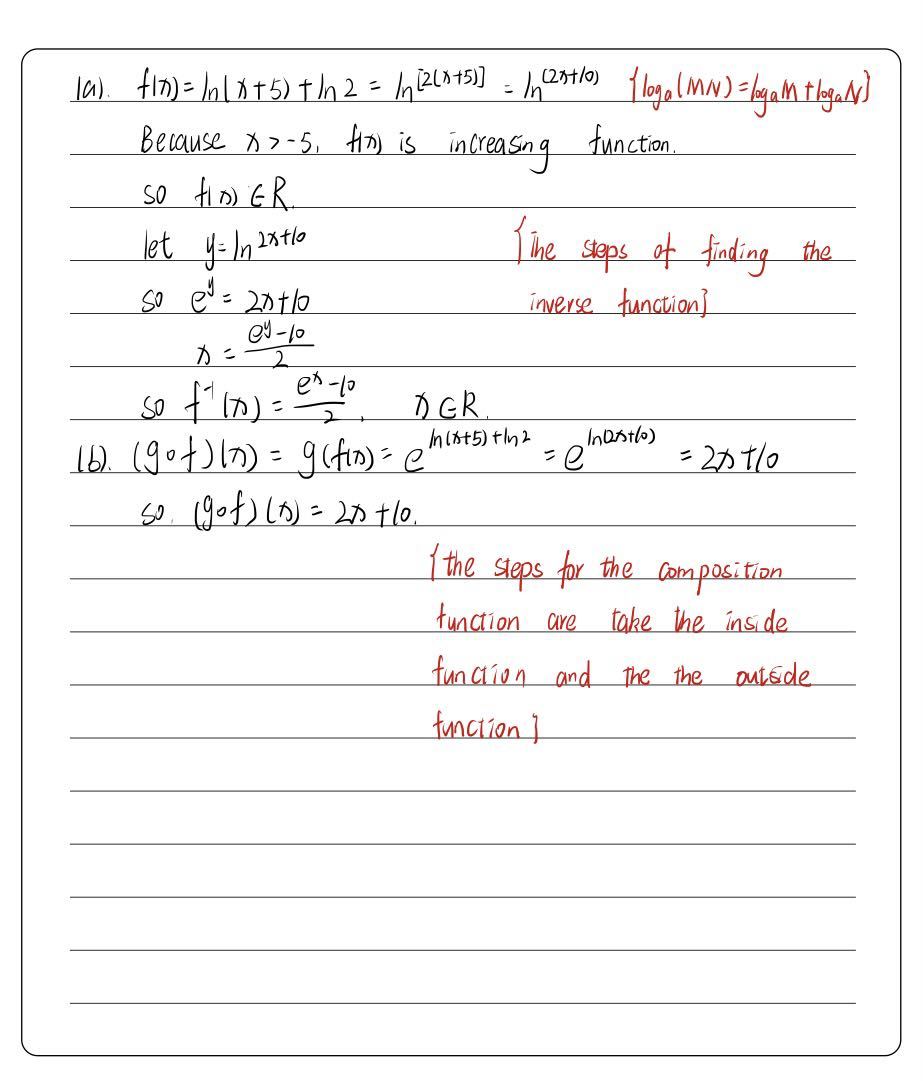 1(a). f(x) = ln(x+5) + ln 2 = ln^[2(x+5)] = ln^(2x+10) {logₐ(MN) = logₐM + logₐN}
Because x > -5, f(x) is increasing function.
so f(x) ∈ R.
let y = ln^2x+10 {The steps of finding the
so e^y = 2x+10 inverse function}
x = (e^y - 10)/2
so f^-1(x) = (e^x - 10)/2, x ∈ R.
1(b). (g∘f)(x) = g(f(x)) = e^ln(x+5)+ln2 = e^ln(2x+10) = 2x+10
so. (g∘f)(x) = 2x+10.
{the steps for the composition
function are take the inside
function and the the outside
function}